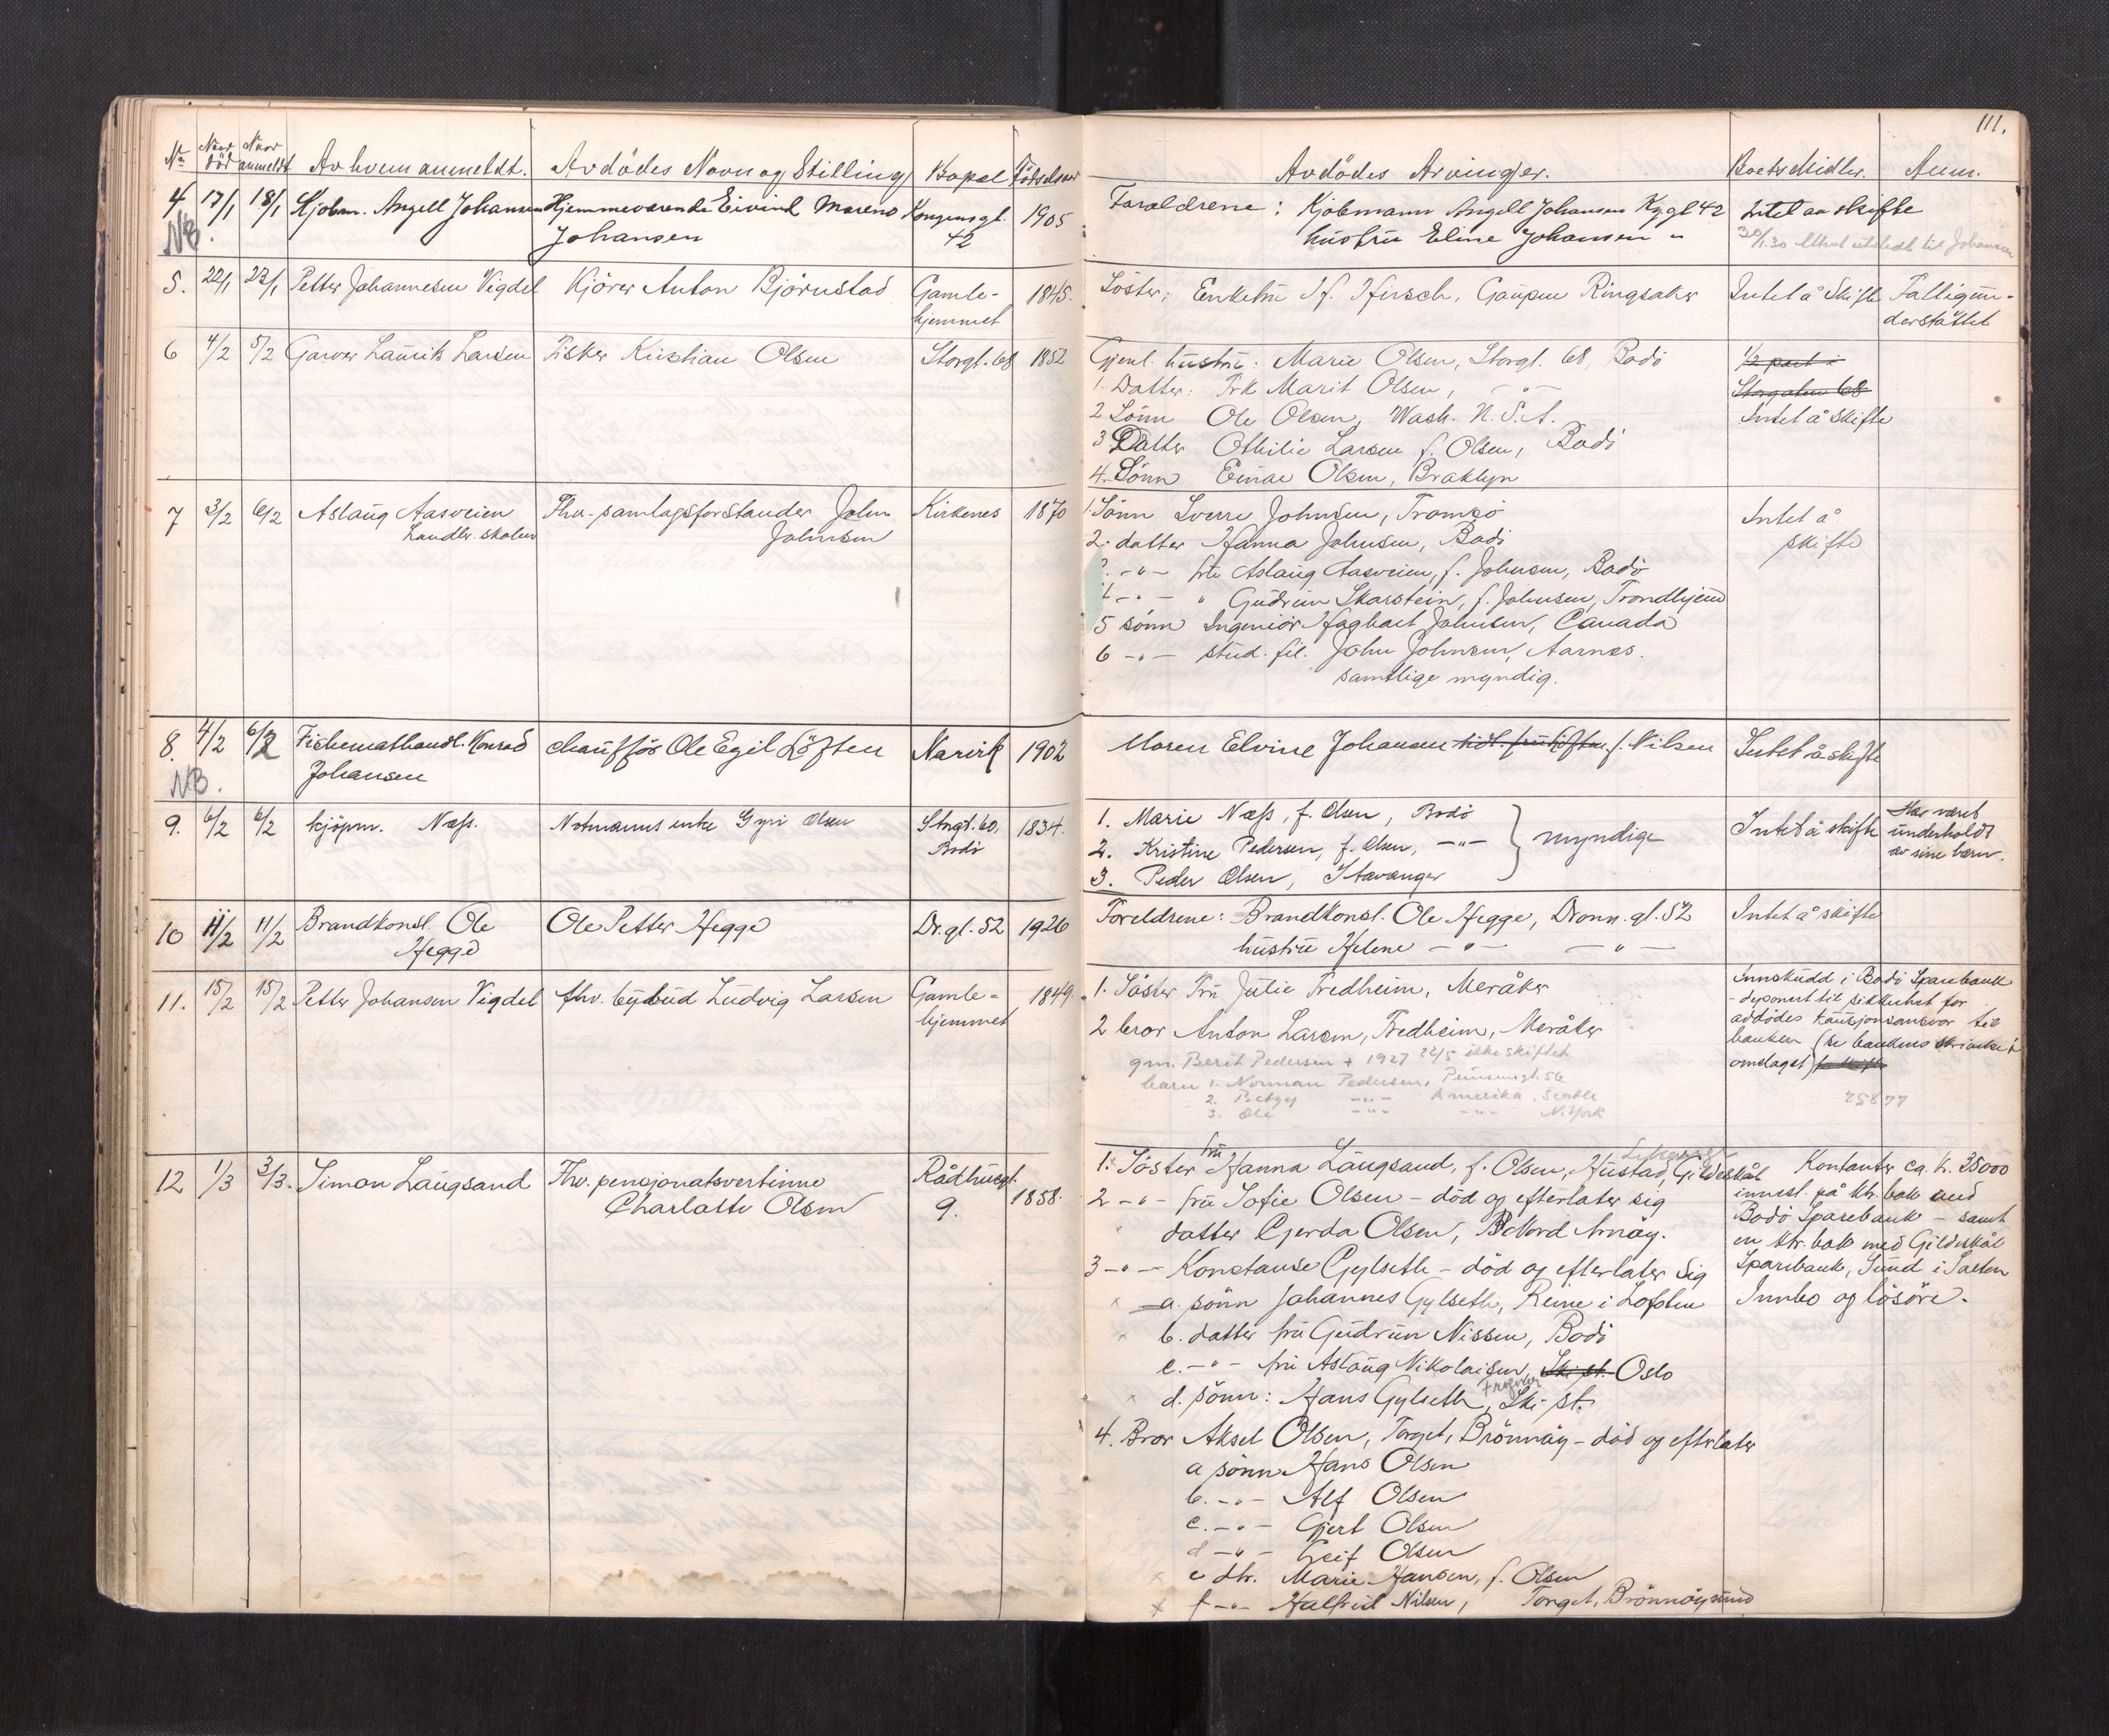 111.
No Naar död Naar anmeldt Av hvem anmeldt. Avdödes Navn og Stilling Bopæl Födselsaar
Avdödes Arvinger. Boets Midler. Anm.
4 17/1 18/1 Kjöbm. Angell Johansen Hjemmeværende Eivind Moreno Kongensgt. 1905
NB. Johansen 42
Foraldrene: Kjöbmann Angell Johansen Kg.gt 42 Intet aa skifte
hustru Eline Johansen " 30/1.30 Attest utstedt til Johansen
5. 22/1 23/1 Petter Johannesen Vigdel Kjörer Anton Björnstad Gamle- 1845.
hjemmet
Söster; Enkefru H. Hirsch, Gaupen Ringsaker Intet å Skifte Fattigun-
derstöttet
6 4/2 5/2 Garver Laurits Larsen Fisker Kristian Olsen Storgt. 68 1852
Gjenl. hustru: Marie Olsen, Storgt. 68, Bodö 1/2 part i
1. Datter: Frk Marit Olsen, - " - Storgaten 68
2 Sönn Ole Olsen, Wash. N.S.A. Intet å skifte
3 Datter Othilie Larsen f. Olsen, Bodö
4. Sönn Einar Olsen, Braklyn
7 3/2 6/2 Aslaug Aasveien Fhv. samlagsforstander John Kirkenes 1870
Landbr. skolen Johnsen
1. Sönn Sverre Johnsen, Tromsö Intet å
2. datter Hanna Johnsen, Bodö skifte
- " - fru Aslaug Aasveien, f. Johnsen, Bodö
4 - " - " Gudrun Skarstein, f. Johnsen, Trondhjem
5 sönn Ingeniör Hagbart Johnsen, Canada
6 - " - stud. fil. John Johnsen, Aarnes.
samtlige myndig.
8. 4/2 6/2 Fiskemathandl. Konrad chaufför Ole Egil Löften Narvik 1902
NB. Johansen
Maren Elvine Johansen tidl. fru Löften f. Nilsen Intet å skifte
9. 6/2 6/2 kjöpm. Næss. Notmanns enke Gyri Olsen Storgt. 60, 1834.
Bodö
1. Marie Næss, f. Olsen, Bodö Har været
2. Kristine Pedersen, f. Olsen, - " - myndige Intet å skifte underholdt
3. Peder Olsen, Stavanger av sine barn.
10 11/2 11/2 Brandkonst. Ole Ole Petter Hegge Dr.gt. 52 1926
Hegge
Foreldrene: Brandkonst. Ole Hegge, Dronn.gt. 52 Intet å skifte
hustru Helene - " - - " -
11. 15/2 15/2 Petter Johansen Vigdel fhv. bybud Ludvig Larsen Gamle- 1849.
hjemmet
1. Söster Fru Julie Fredheim, Meråker Innskudd i Bodö Sparebank
- deponert til sikkerhet for
2 bror Anton Larsen, Fredheim, Meråker avdödes kausjonsansvar til
banken (se bankens skrivelse i
gm. Berit Pedersen + 1927 22/5 ikke skiftet omslaget)
barn 1. Norman Pedersen, Prinsensgt. 56
2. Betzy - " - Amerika. Seattle
3. Ole - " - - " - N. York
12 1/3 3/3. Simon Laugsand Fhv. pensjonatsvertinne Rådhusgt. 1858.
Charlotte Olsen 9.
1. Söster fru Hanna Laugsand, f. Olsen, Hustad, Gildeskål Kontanter ca. kr. 35000
2 - " - fru Sofie Olsen - död og efterlater sig innest. på ktr. bok med
datter Gjerda Olsen, Nord Arnöy. Bodö Sparebank - samt
en ktr. bok med Gildeskål
3 - " - Konstanse Gylseth - död og efterlater sig Sparebank, Sund i Salten
a. sönn Johannes Gylseth, Reine i Lofoten Innbo og lösöre.
b. datter fru Gudrun Nissen, Bodö
c. - " - fru Aslaug Nikolaisen, Ski st. Oslo
d. sönn: Hans Gylseth, Ski st.
4. Bror Aksel Olsen, Torget, Brönnöy - död og efterlater
a sönn Hans Olsen
b. - " - Alf Olsen
c. - " - Gjert Olsen
d - " - Leif Olsen
e dtr. Marie Hansen, f. Olsen
f - " - Halfrid Nilsen, Torget, Brönnöysund